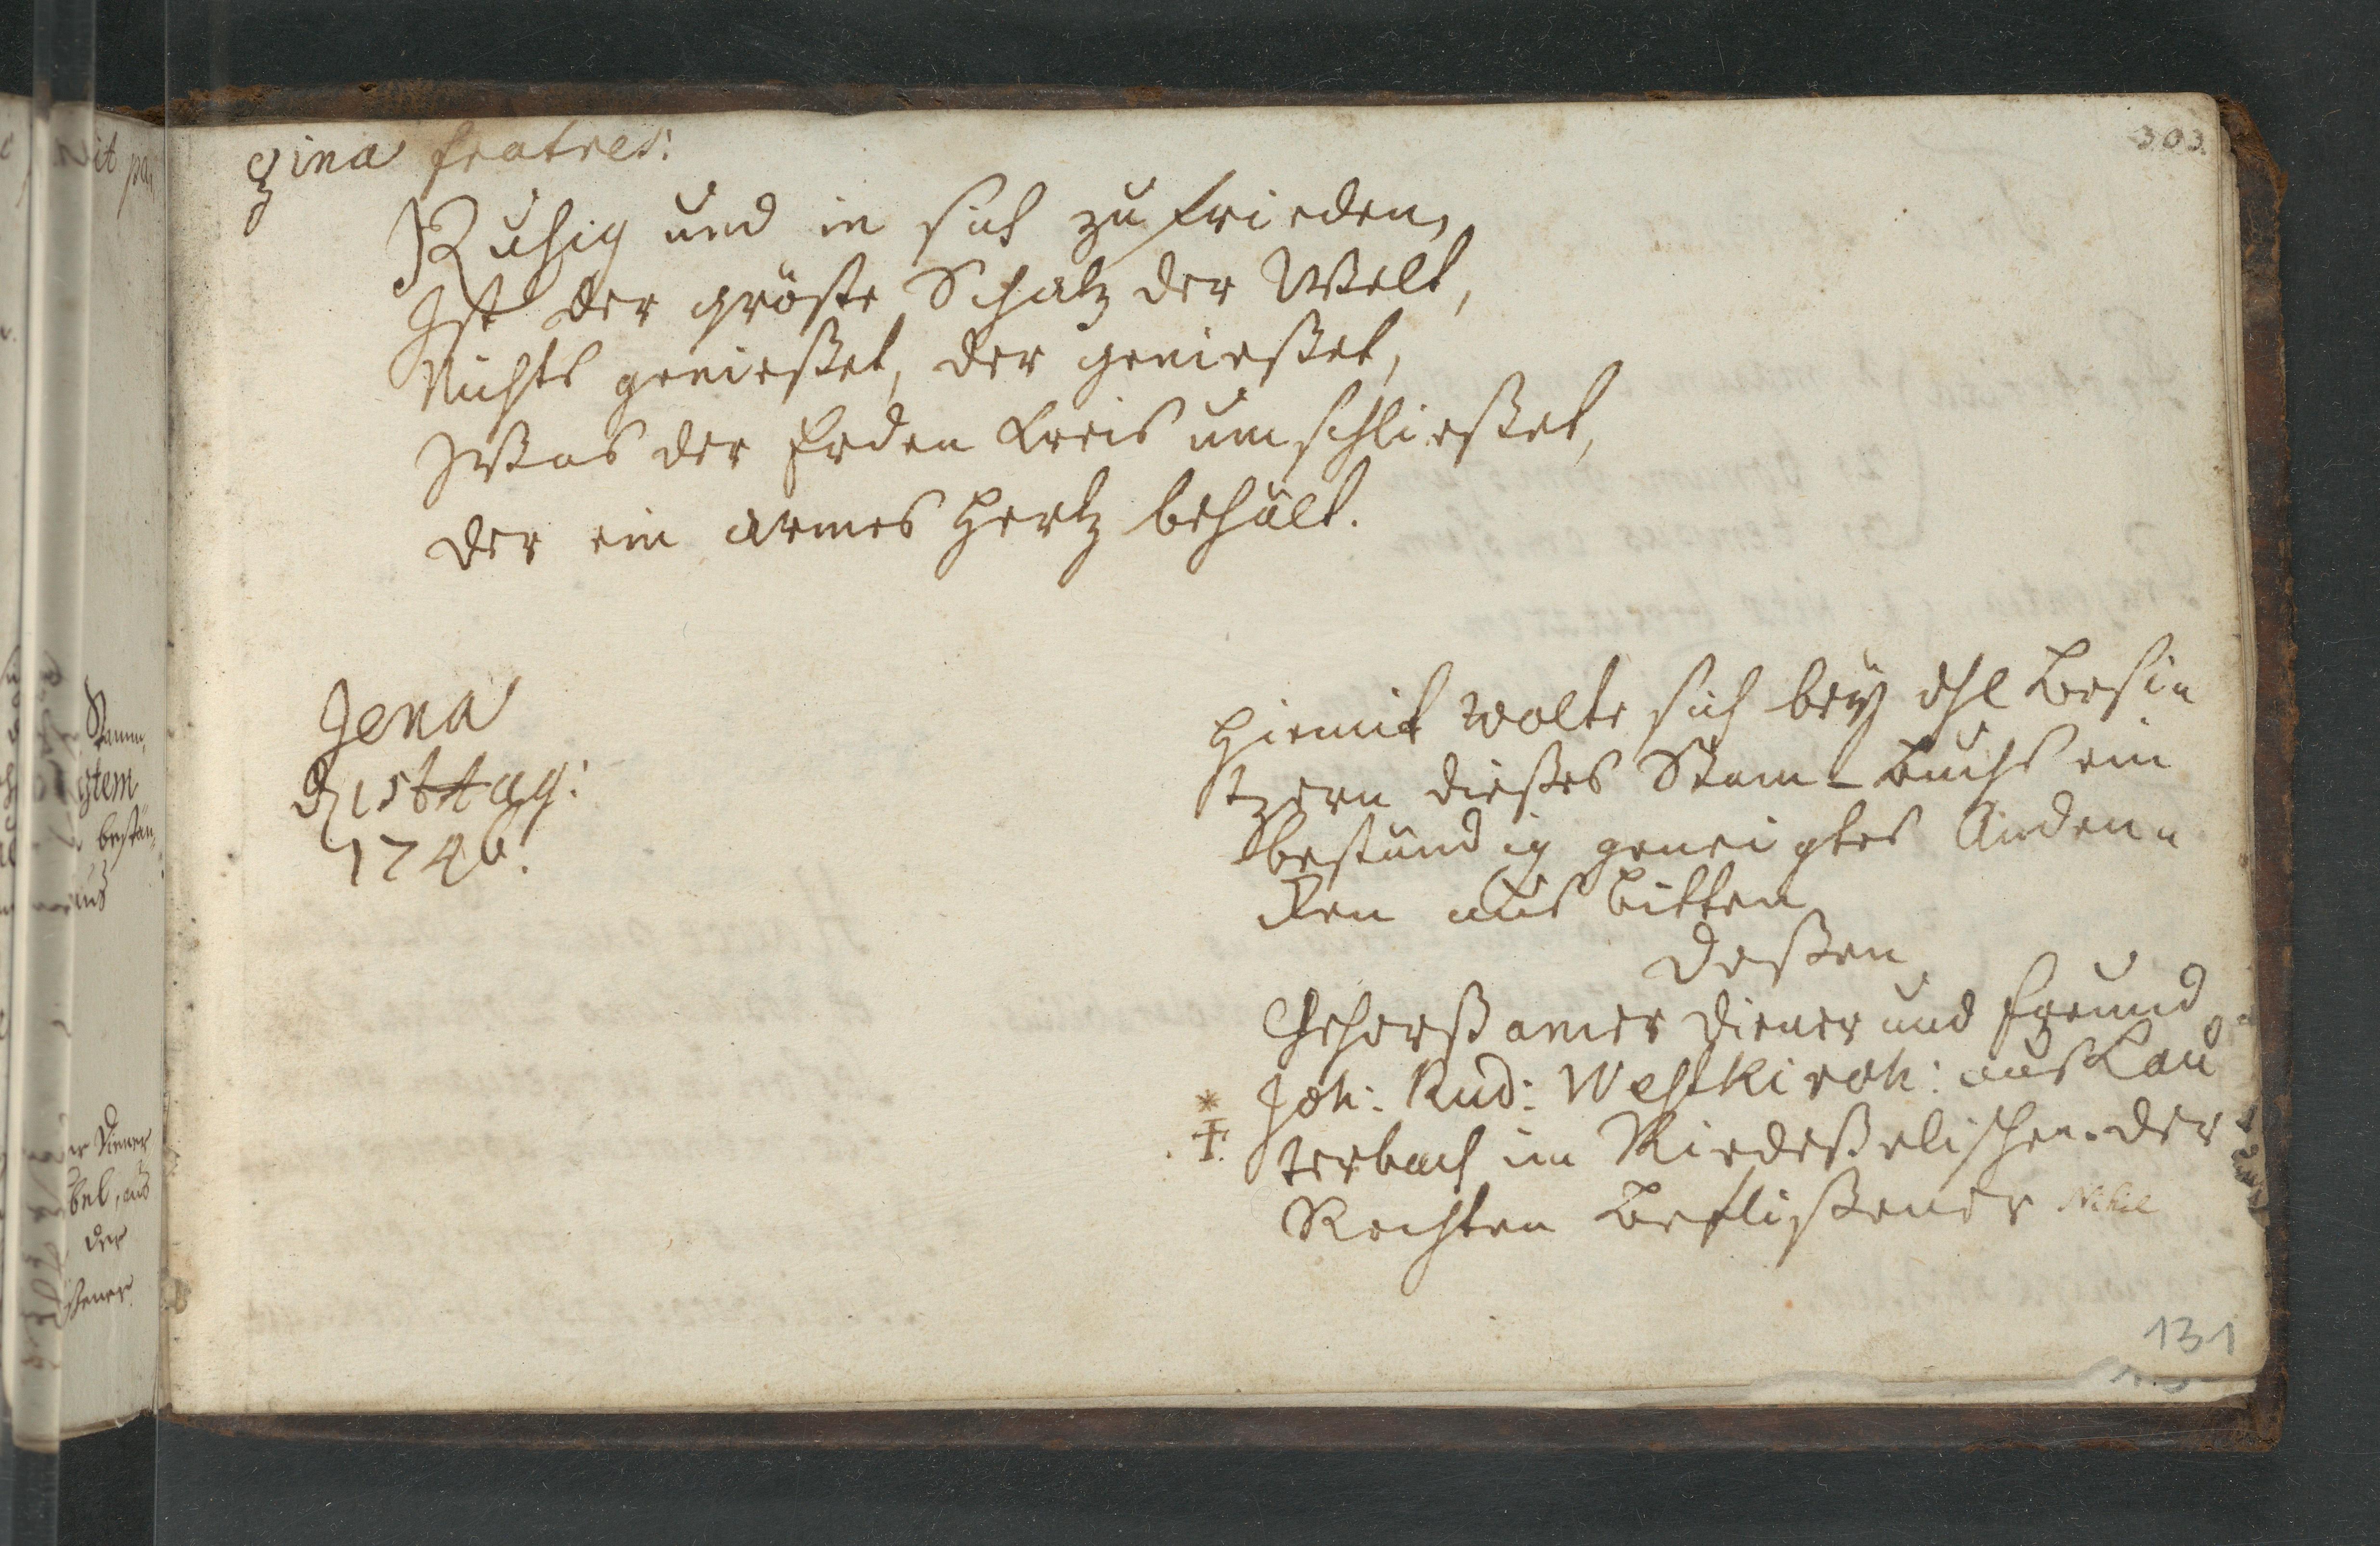 303.
gina fratres:
Ruhig und in sich zu frieden,
Ist der gröste Schatz der Welt,
Nichts genießet, der genießet,
Was der Erden Kreis umschließet,
der ein armes Hertz behält.
Jena
1740.
Hiemit wolte sich bey Besi
tzern dießes Stam-Buchs ein
beständig geneigtes Anden
ken aus bitten
deßen
Gehorßamer Diener und Freund
Joh: Rud: Westkirch: aus Lau
terbach im Riedeßelischen. der
Rechten Beflißener
131